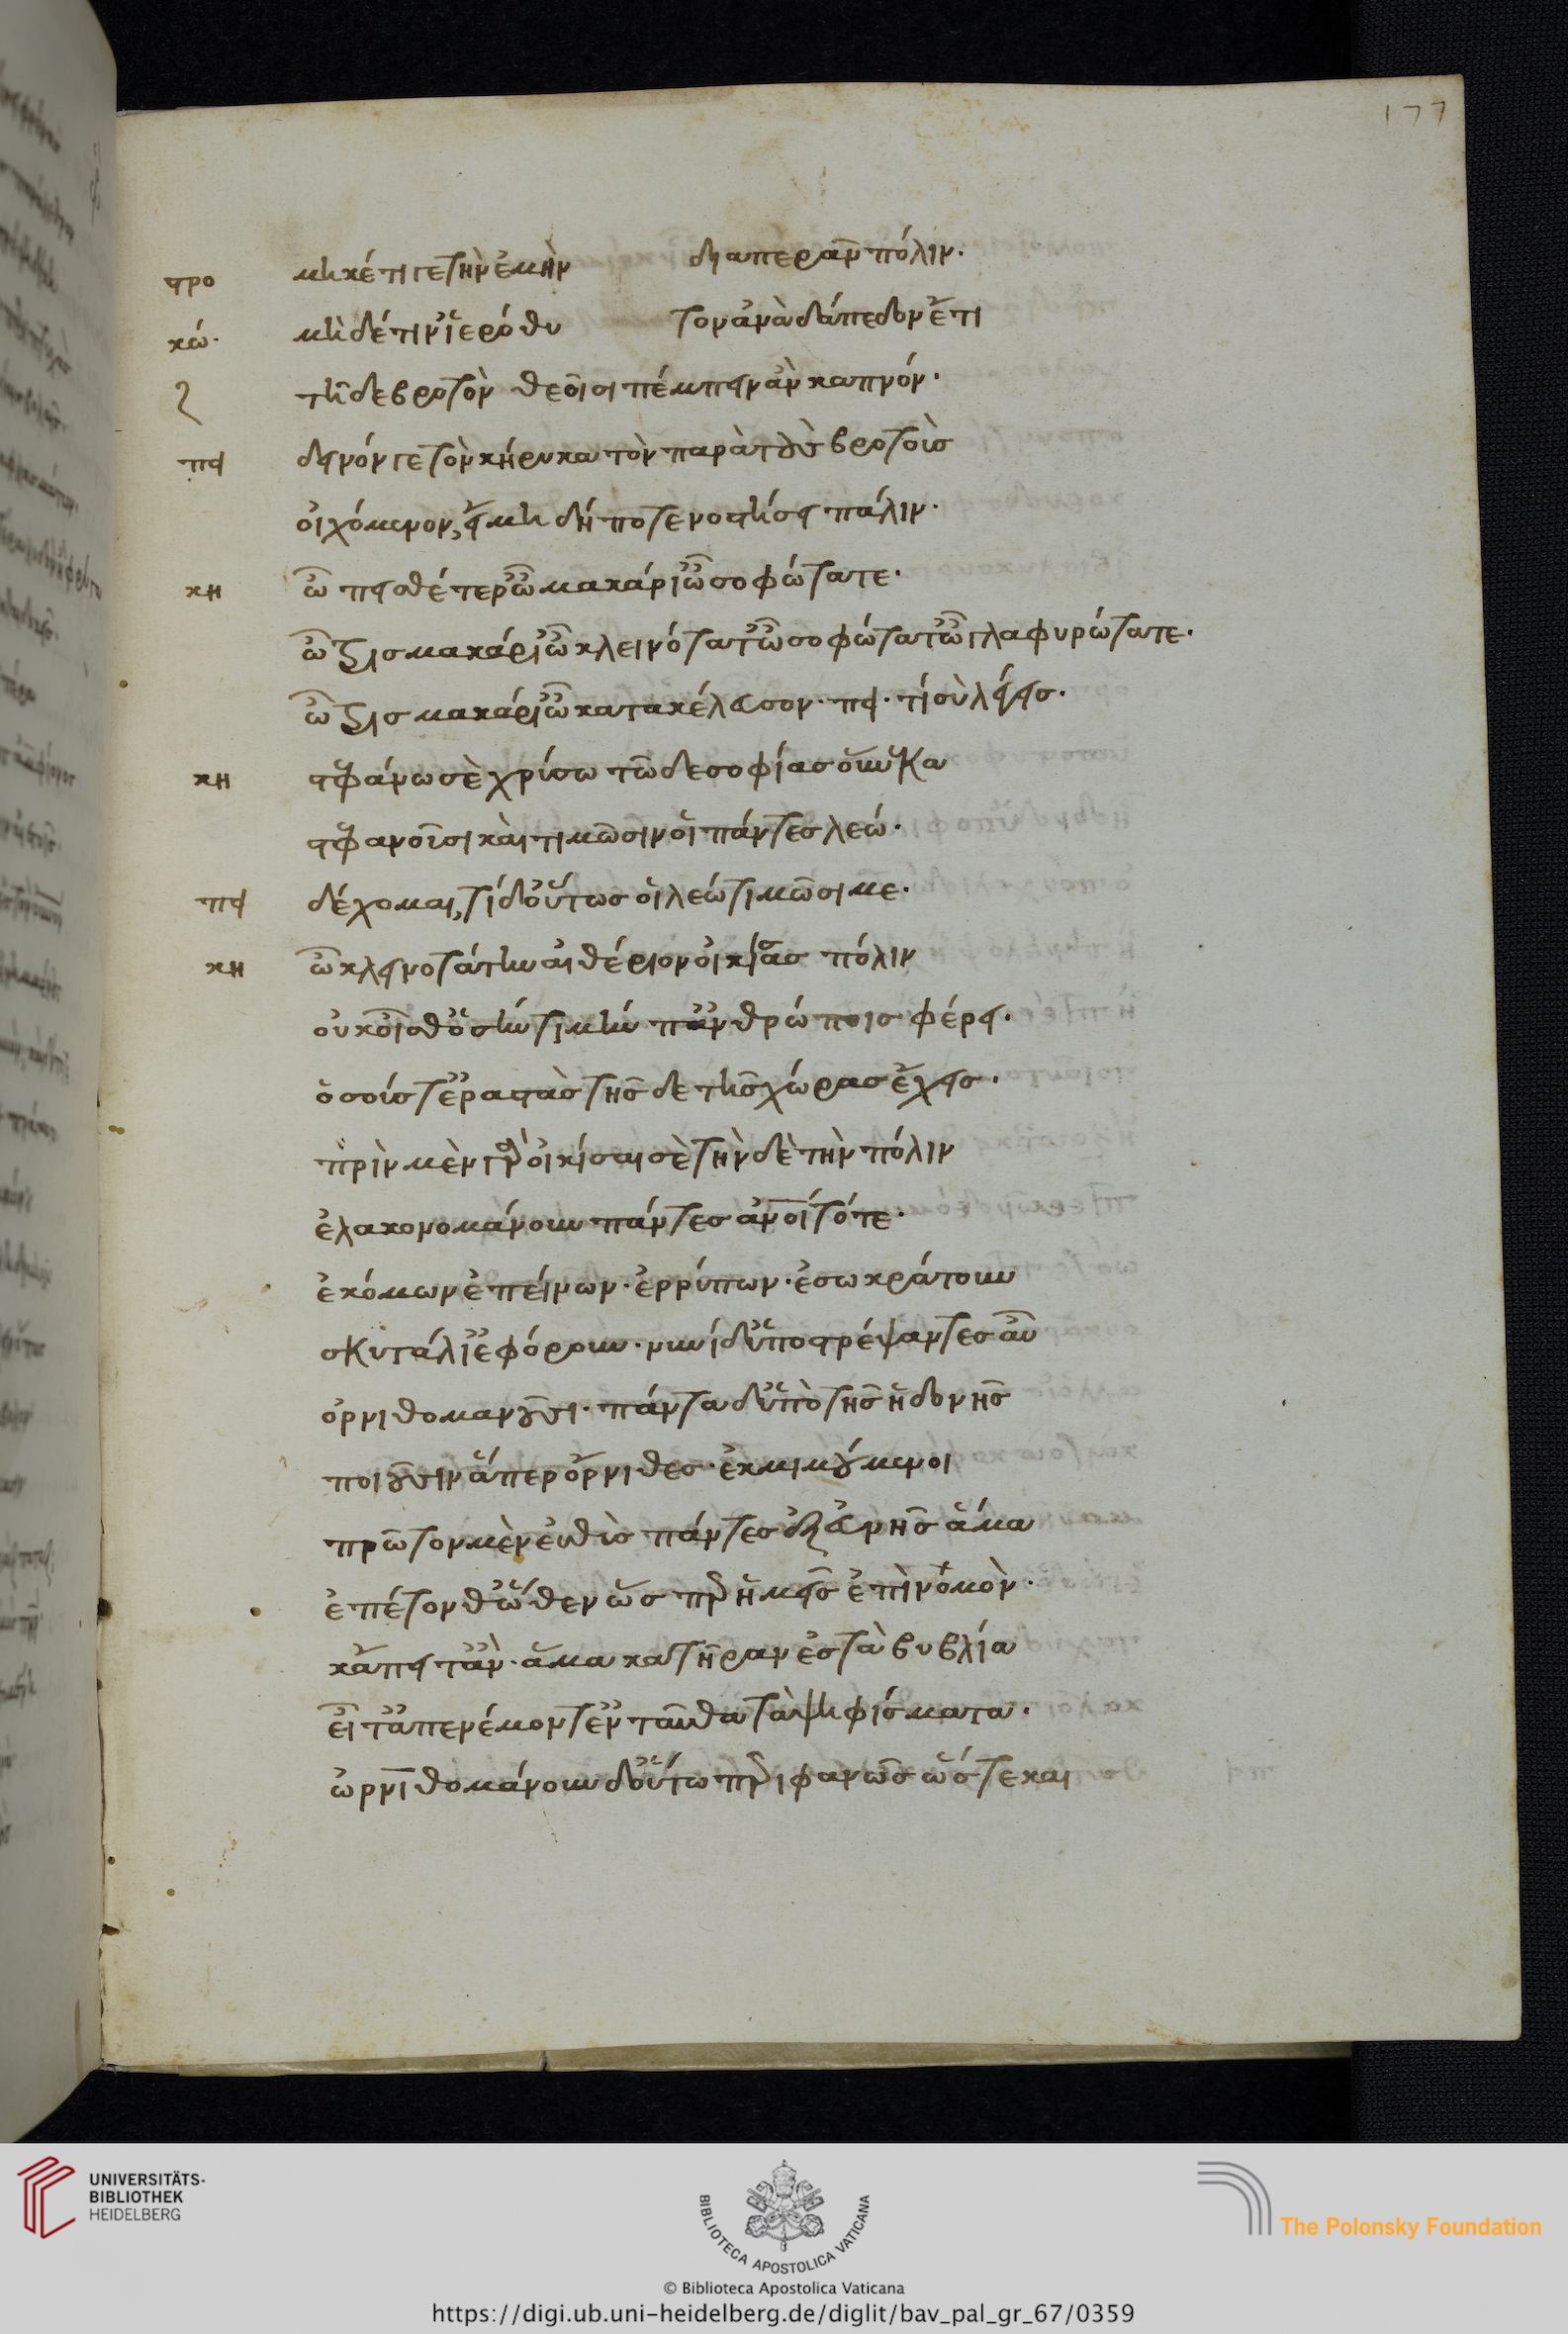 177
προ μηκέτι γε τὴν ἐμὴν διαπερᾶν πόλιν.
κώ. μὴδέ τιν ἱερόθυ τον ἀνὰ δάπεδον ἔτι
τῆδε βροτὸν θεοῖσι πέμπειν ἂν καπνόν.
πει δεινόν γε τὸν κήρυκα τὸν παρὰ τοὺς βροτοὺς
οἰχόμενον, εἰ μὴ δήποτε νοστήσει πάλιν.
κη ὦ πεισθέτερ ὦ μακάρι ὦ σοφώτατε.
ὦ τρισμακάρι ὦ κλεινότατ ὦ σοφώτατ ὦ γλαφυρώτατε.
ὦ τρισμακάρι ὦ κατακέλευσον. πει. τί σὺ λέγεις.
κη στεφάνω σὲ χρύσω τῶδε σοφίας οὕνεκα
στεφανοῦσι καὶ τιμῶσιν οἱ πάντες λεώ.
πει δέχομαι, τί δ' οὕτως οἱ λεὼ τιμῶσί με.
κη ὦ κλεινοτάτην αἰθέριον οἰκίσας πόλιν
οὐκ οἶσθ' ὅσην τιμὴν παρ' ἀνθρώποις φέρει.
ὅσους τ' ἐραστὰς τῆσδε τῆς χώρας ἔχεις.
πρὶν μὲν γὰρ οἰκίσαι σὲ τὴνδὲ τὴν πόλιν
ἐλακονομάνουν πάντες ἄνοι τότε.
ἐκόμων ἐπείνων. ἐρρύπων. ἐσωκράτουν
σκυτάλι' ἐφόρουν. νυνὶ δ' ὑποστρέψαντες αὖ
ὀρνιθομανοῦσι. πάντα δ' ὑπὸ τῆς ἡδονῆς
ποιοῦσιν ἅπερ ὄρνιθες. ἐκμιμούμενοι
πρῶτον μὲν εὐθὺς πάντες ἐξ εὐνῆς ἅμα
ἐπέτονθ' ἕωθεν ὥσπερ ἡμεῖς ἐπὶ νομὸν.
κἄπειτ' ἂν. ἅμα κατῆραν ἐς τὰ βυβλία
εἶτ' ἀπενέμοντ' ἐνταῦθα τὰ ψηφίσματα.
ὠρνιθομάνουν δ' οὕτω περιφανῶς ὥστε και
UNIVERSITÄTS-
BIBLIOTHEK
HEIDELBERG
BIBLIOTECA APOSTOLICA VATICANA
The Polonsky Foundation
© Biblioteca Apostolica Vaticana
https://digi.ub.uni-heidelberg.de/diglit/bav_pal_gr_67/0359